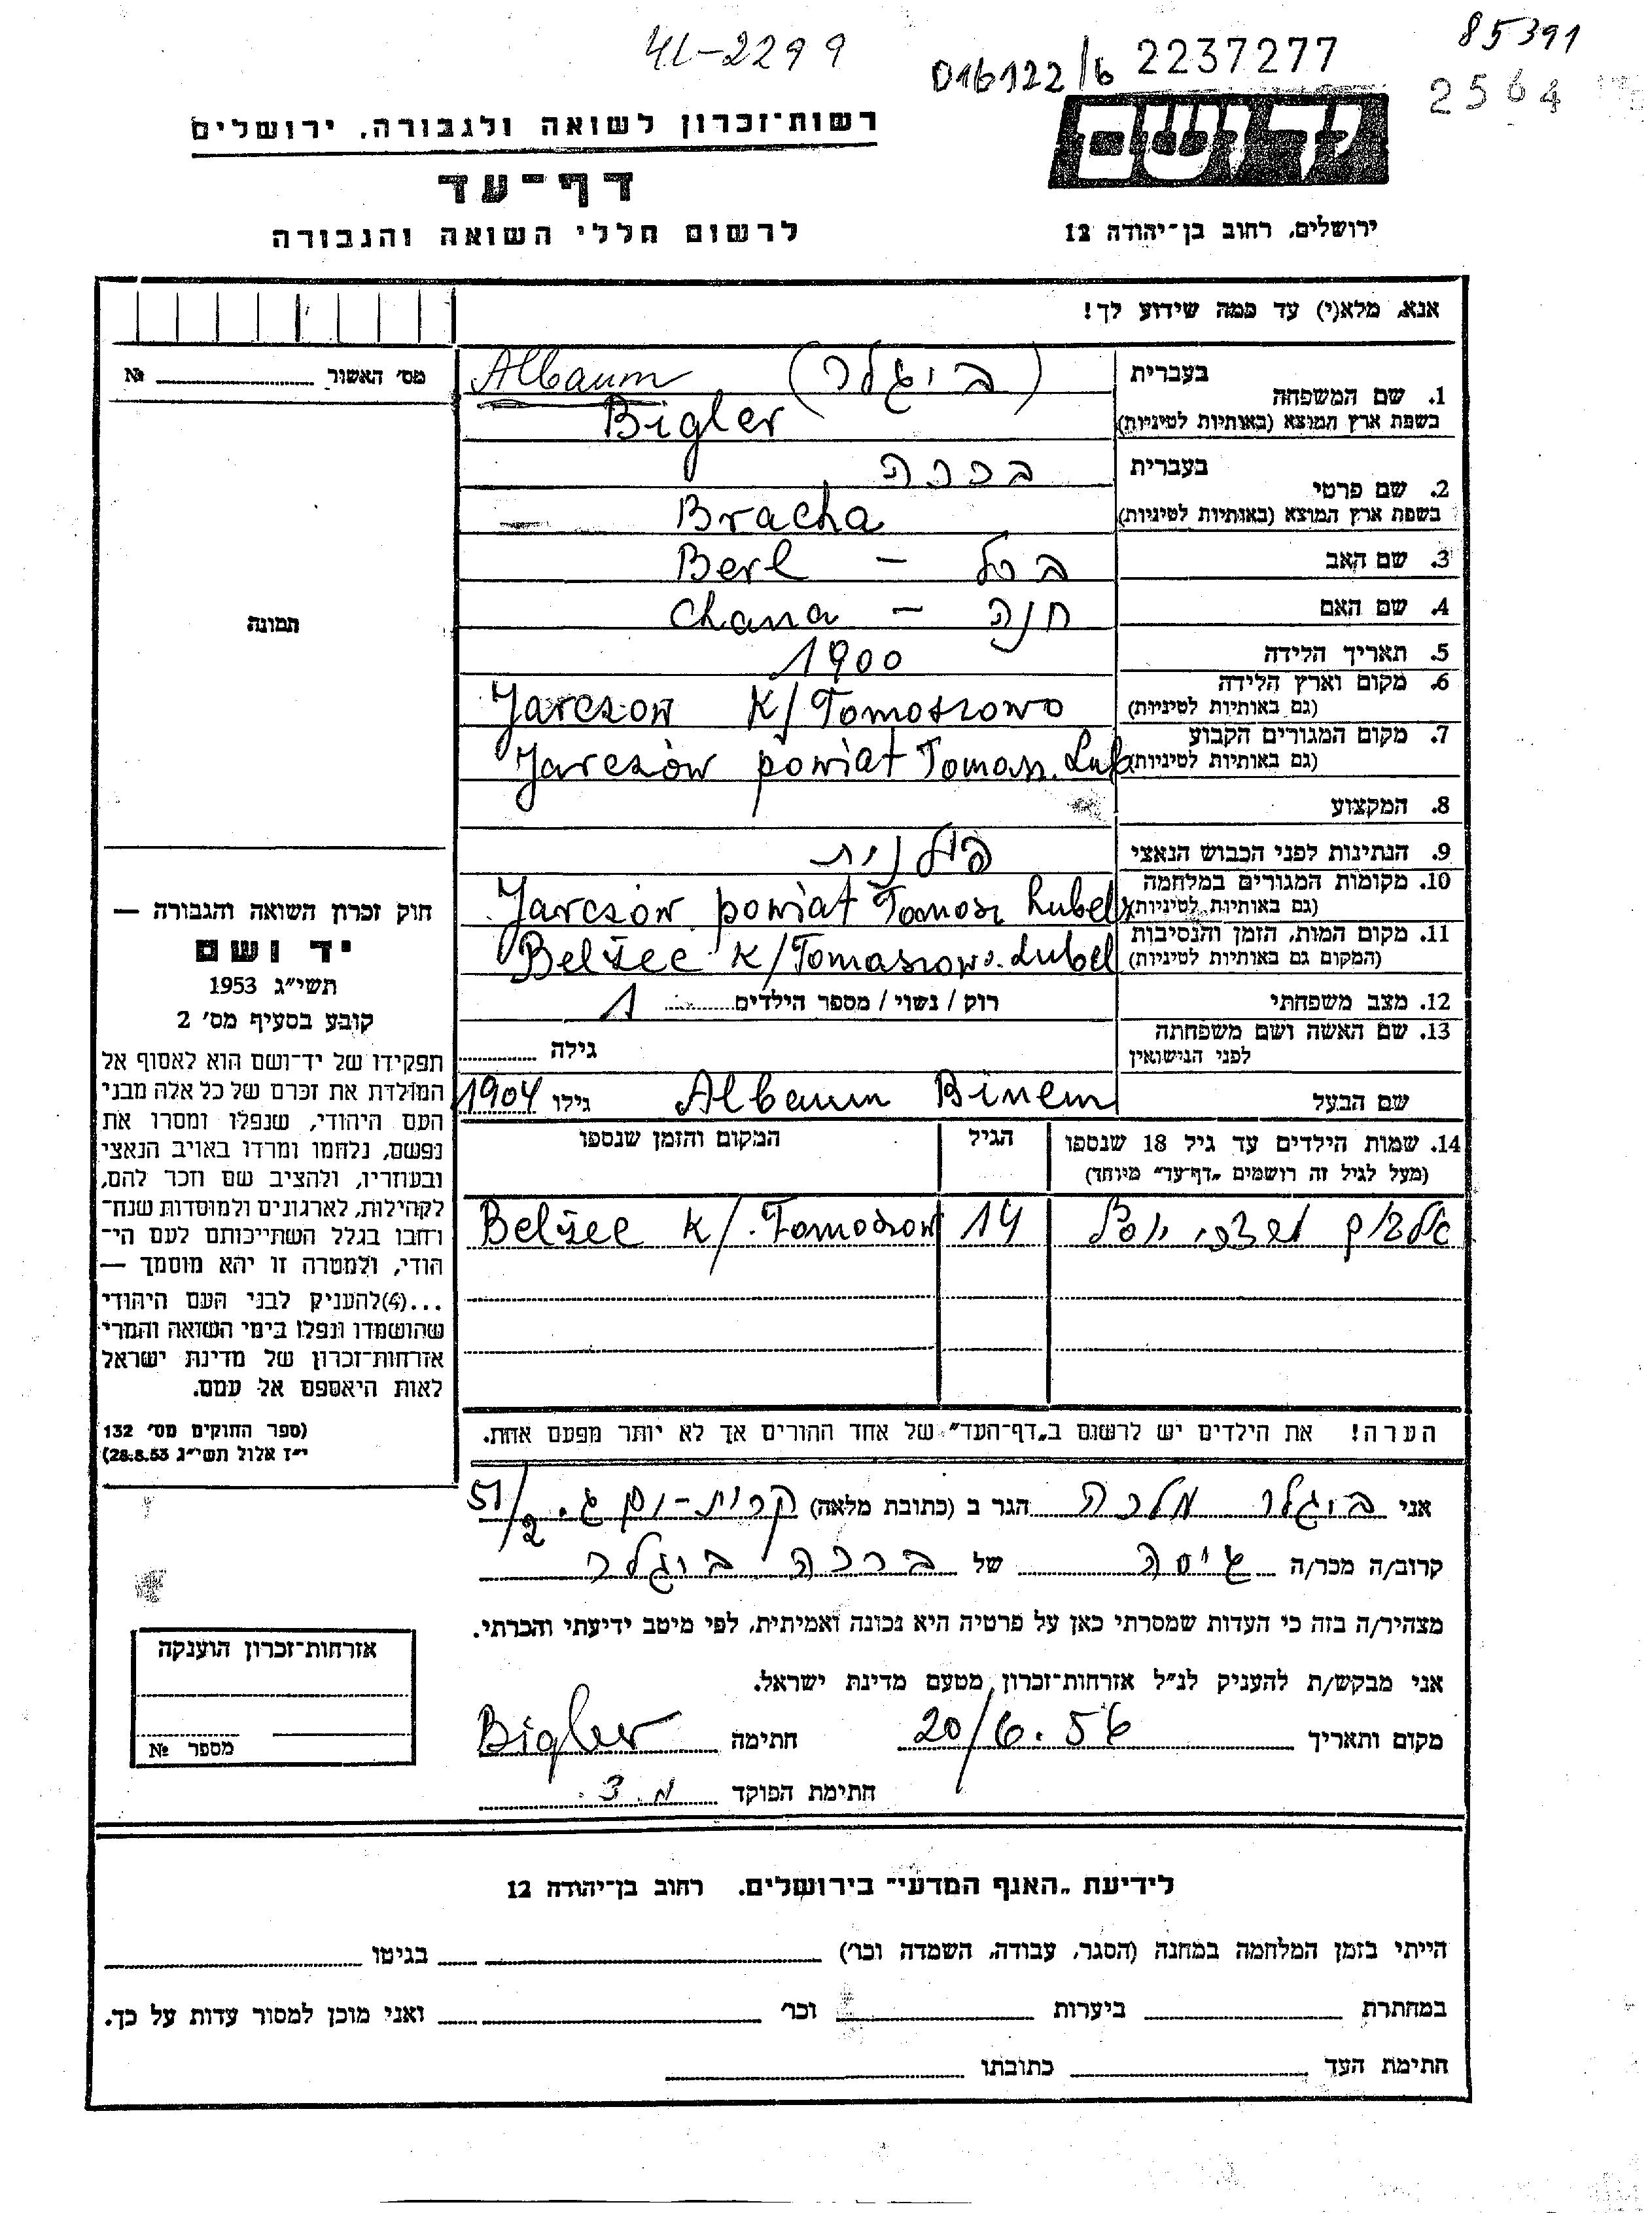 41-2299
D16122/6 2237277
85391
2564
יד ושם
ירושלים, רחוב בן־יהודה 12
רשות־זכרון לשואה ולגבורה, ירושלים
דף־עד
לרשום חללי השואה והגבורה
אנא, מלא(י) עד כמה שידוע לך!
מס' האשור №
תמונה
1. שם המשפחה בעברית (ביגלר) Albaum
בשפת ארץ המוצא (באותיות לטיניות) Bigler
2. שם פרטי בעברית ברכה
בשפת ארץ המוצא (באותיות לטיניות) Bracha
3. שם האב ברל – Berl
4. שם האם חנה – Chana
5. תאריך הלידה 1900
6. מקום וארץ הלידה (גם באותיות לטיניות) Jarczow K/Tomoszowo
7. מקום המגורים הקבוע (גם באותיות לטיניות) Jarczów powiat Tomasz. Lub
8. המקצוע
9. הנתינות לפני הכבוש הנאצי פולנית
10. מקומות המגורים במלחמה (גם באותיות לטיניות) Jarczów powiat Tomosz Lubels
11. מקום המות, הזמן והנסיבות (המקום גם באותיות לטיניות) Belżec K/Tomaszow. Lubel
12. מצב משפחתי רוק / נשוי / מספר הילדים 1
13. שם האשה ושם משפחתה לפני הנישואין גילה
שם הבעל Albaum Binem גילו 1904
14. שמות הילדים עד גיל 18 שנספו הגיל המקום והזמן שנספו
(מעל לגיל זה רושמים "דף־עד" מיוחד)
אלבוים 14 Belżec K/. Tomoszow
הערה! את הילדים יש לרשום ב"דף־העד" של אחד ההורים אך לא יותר מפעם אחת.
חוק זכרון השואה והגבורה —
יד ושם
תשי"ג 1953
קובע בסעיף מס' 2
תפקידו של יד־ושם הוא לאסוף אל
המולדת את זכרם של כל אלה מבני
העם היהודי, שנפלו ומסרו את
נפשם, נלחמו ומרדו באויב הנאצי
ובעוזריו, ולהציב שם וזכר להם,
לקהילות, לארגונים ולמוסדות שנח־
רחבו בגלל השתייכותם לעם הי־
הודי, ולמטרה זו יהא מוסמך —
...(4)להעניק לבני העם היהודי
שהושמדו ונפלו בימי השואה והמרי
אזרחות־זכרון של מדינת ישראל
לאות היאספם אל עמם.
(ספר החוקים מס' 132
י"ז אלול תשי"ג 28.8.53)
אני ביגלר מלכה הגר ב (כתובת מלאה) קרית- 51/2
קרוב/ה מכר/ה גיסה של ברכה ביגלר
מצהיר/ה בזה כי העדות שמסרתי כאן על פרטיה היא נכונה ואמיתית, לפי מיטב ידיעתי והכרתי.
אני מבקש/ת להעניק לנ"ל אזרחות־זכרון מטעם מדינת ישראל.
מקום ותאריך 20/6.56 חתימה Bigler
חתימת הפוקד
אזרחות־זכרון הוענקה
מספר №
לידיעת "האגף המדעי" בירושלים. רחוב בן־יהודה 12
הייתי בזמן המלחמה במחנה (הסגר, עבודה, השמדה וכר') בגיטו
במחתרת ביערות וכר' ואני מוכן למסור עדות על כך.
חתימת העד כתובתו